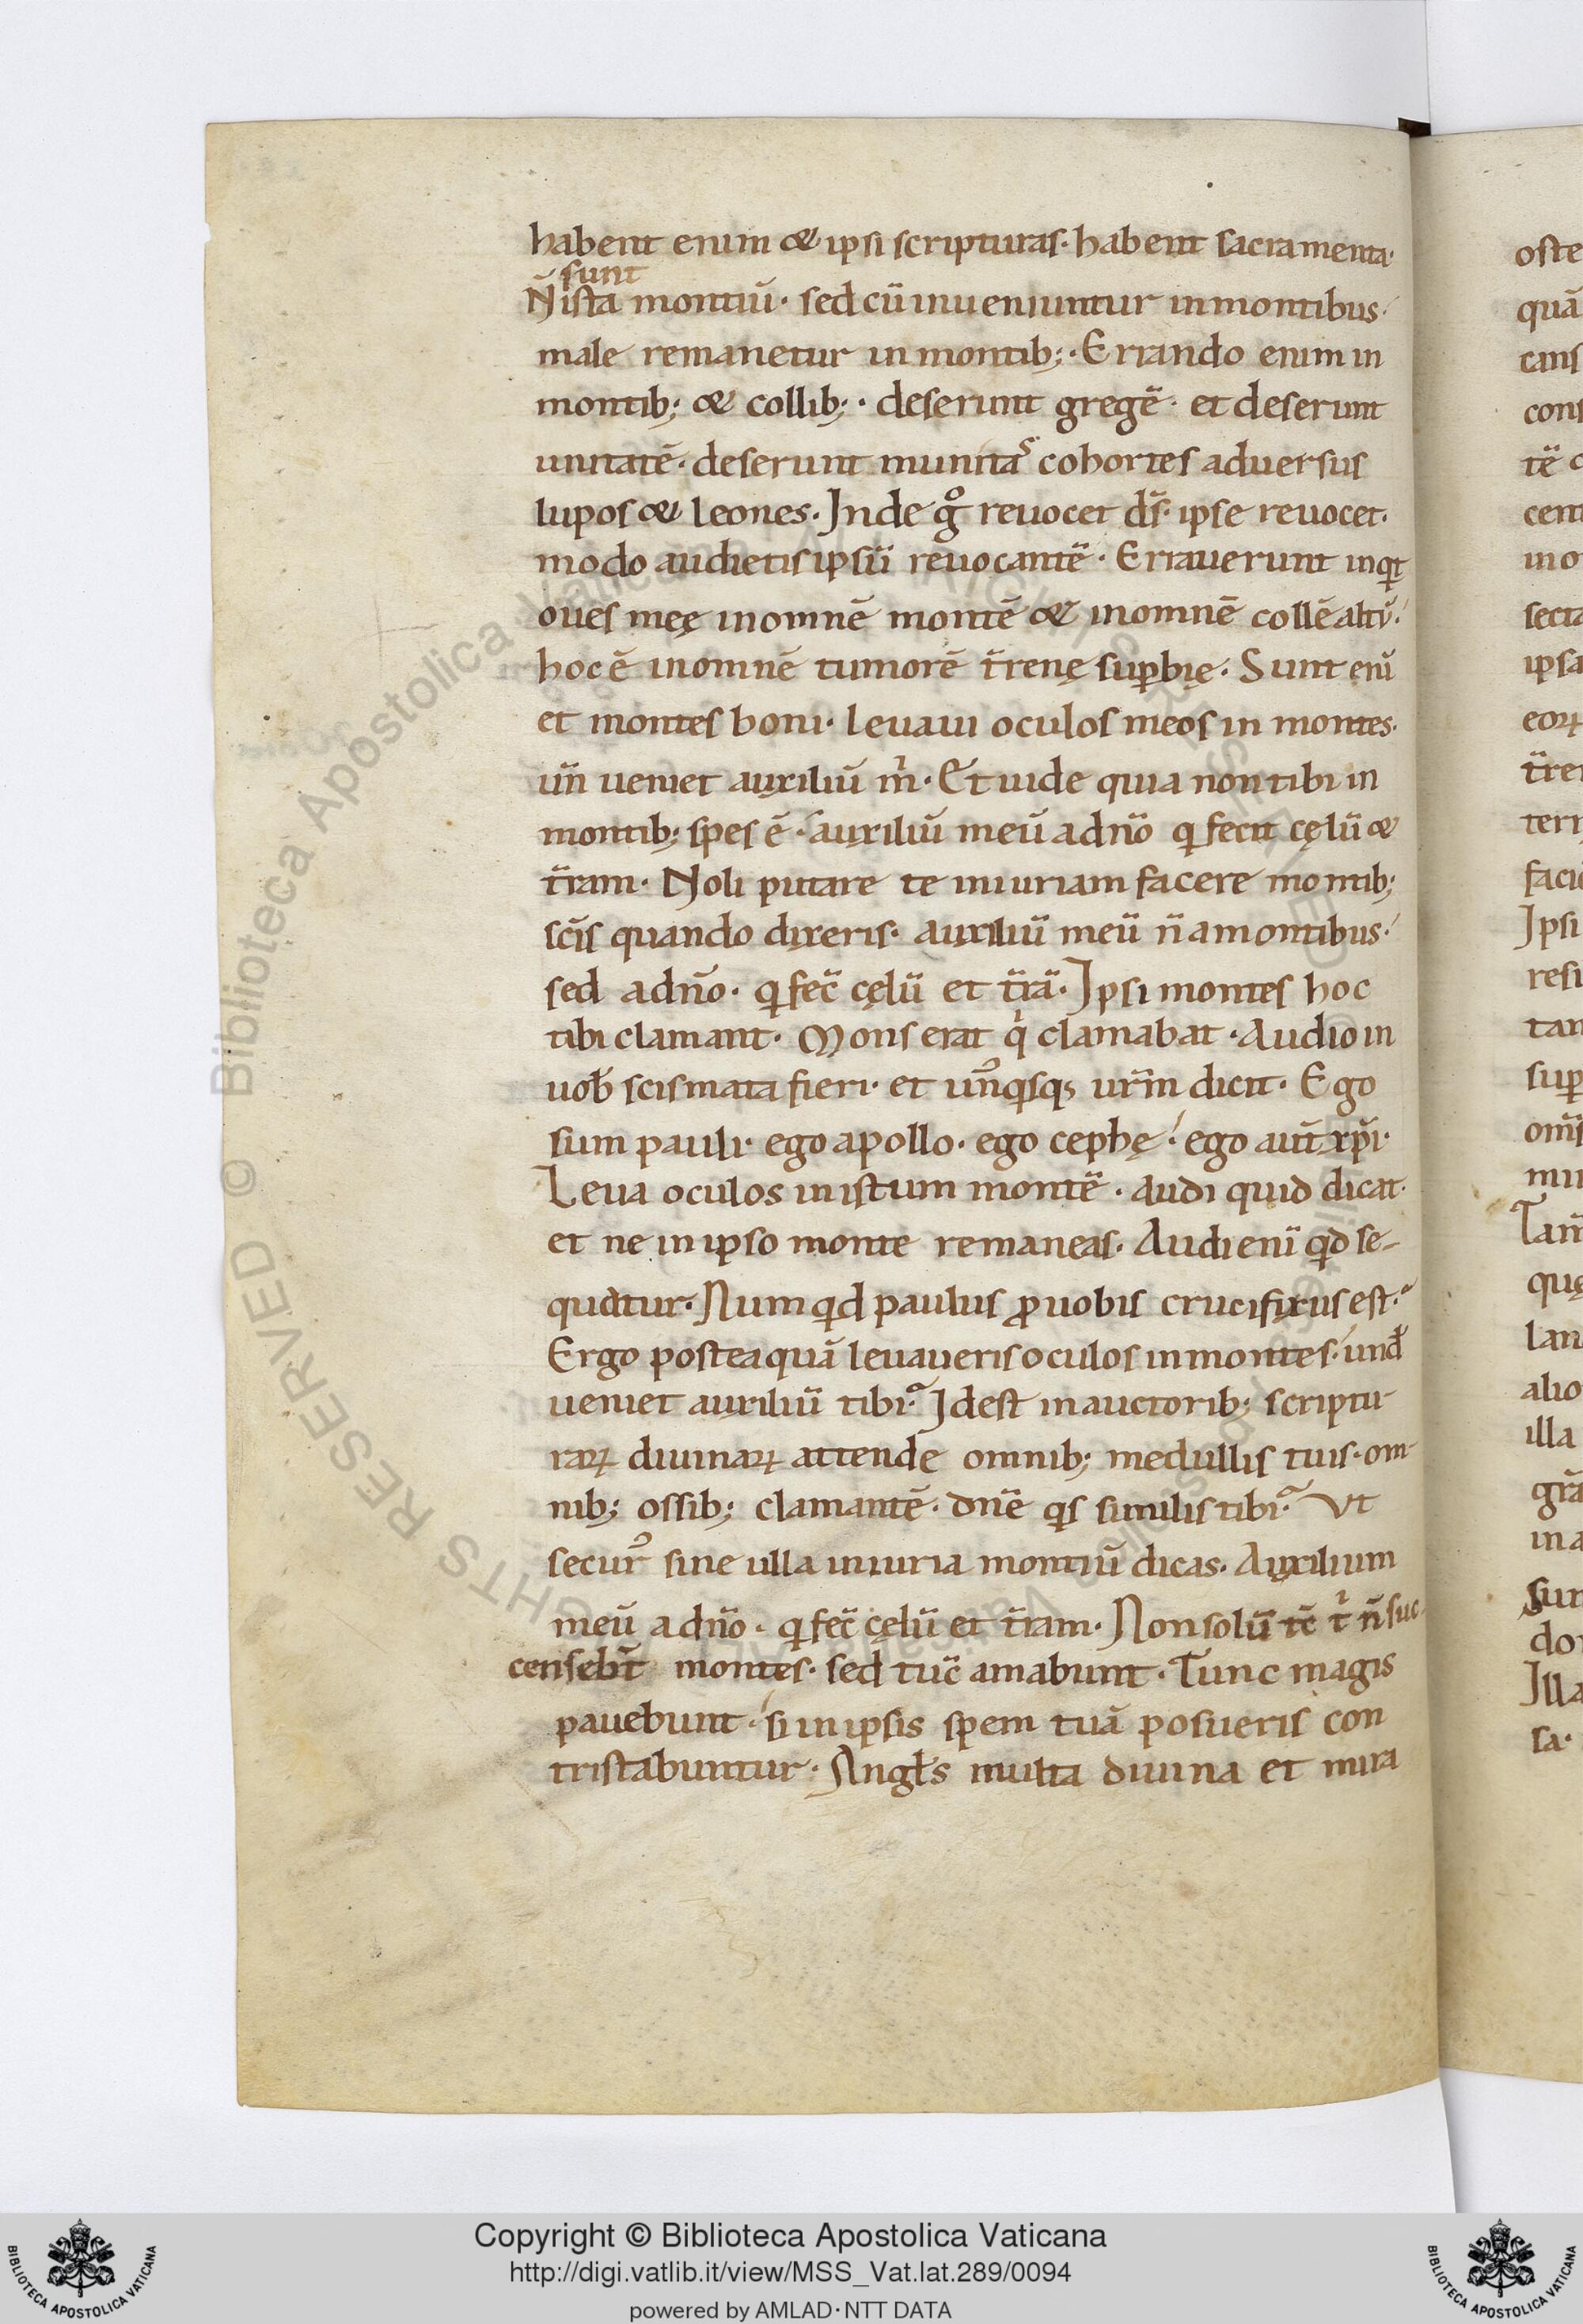 habent enim & ipsi scripturas· habent sacramenta·
sunt
N̄ ista montiū· sed cū inueniuntur in montibus·
male remanetur in montib;· Errando enim in
montib; & collib;· deserunt gregē· et deserunt
unitatē· deserunt munitas cohortes aduersus
lupos & leones· Inde g̊ reuocet d̄s· ipse reuocet·
modo audietis ipsū reuocantē· Errauerunt inqt
oues meę in omnē montē & in omnē collē altū·
hoc ē in omnē tumorē t̄renę sup̄bię· Sunt enī
et montes boni· leuaui oculos meos in montes·
un̄ ueniet auxiliū m̄· Et uide quia non tibi in
montib; spes ē· auxiliū meū a dn̄o q fecit cęlū &
t̄ram· Noli putare te iniuriam facere montib;
sc̄is quando dixeris· auxiliū meū n̄ a montibus·
sed a dn̄o· q fec̄ cęlū et t̄rā· Ipsi montes hoc
tibi clamant· Mons erat qͥ clamabat· Audio in
uob̄ scismata fieri· et un̄qsq; ur̄m dicit· Ego
sum pauli· ego apollo· ego cephę· ego aut̄ xp̄i·
Leua oculos in istum montē· audi quid dicat·
et ne in ipso monte remaneas· Audi enī qd se-
quatur· Num qd paulus ꝓ uobis crucifixus est·
Ergo postea quā leuaueris oculos in montes· und̄
ueniet auxiliū tibi· Id est in auctorib; scriptu
raꝝ diuinaꝝ attende omnib; medullis tuis· om-
nib; ossib; clamantē· dn̄e qs similis tibi· Vt
secur᾿ sine ulla iniuria montiū dicas· Auxilium
meū a dn̄o· q fec̄ cęlū et t̄ram· Non solū tc̄ tͥ n̄ suc
censebt̄ montes· sed tūc amabunt· Tunc magis
pauebunt· si in ipsis spem tuā posueris con
tristabuntur· Angłs multa diuina et mira
oste
quā
cans
cons
tē
cent
in o
secta
ipsa
eoꝝ
t̄re
terr
faci
Ipsi
resi
tan
sup
om̄
mi
Tam̄
quę
lan
alio
illa
grā
in a
Sun
do
Illa
sa·
Copyright © Biblioteca Apostolica Vaticana
http://digi.vatlib.it/view/MSS_Vat.lat.289/0094
powered by AMLAD·NTT DATA
BIBLIOTECA APOSTOLICA VATICANA
BIBLIOTECA APOSTOLICA VATICANA